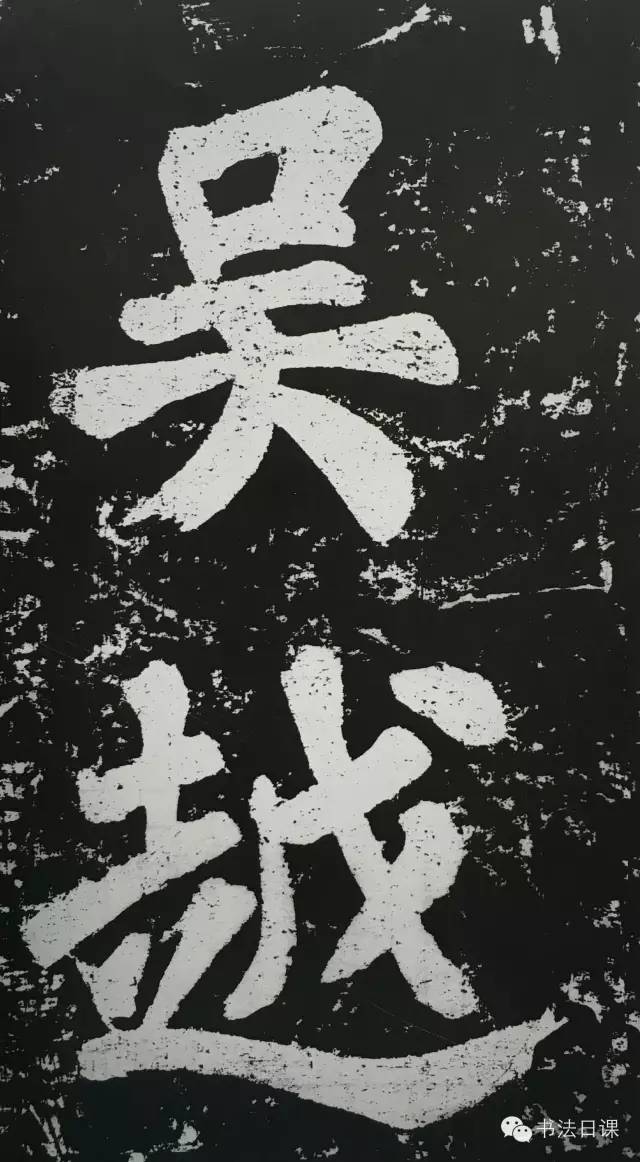 吴越
书法日课